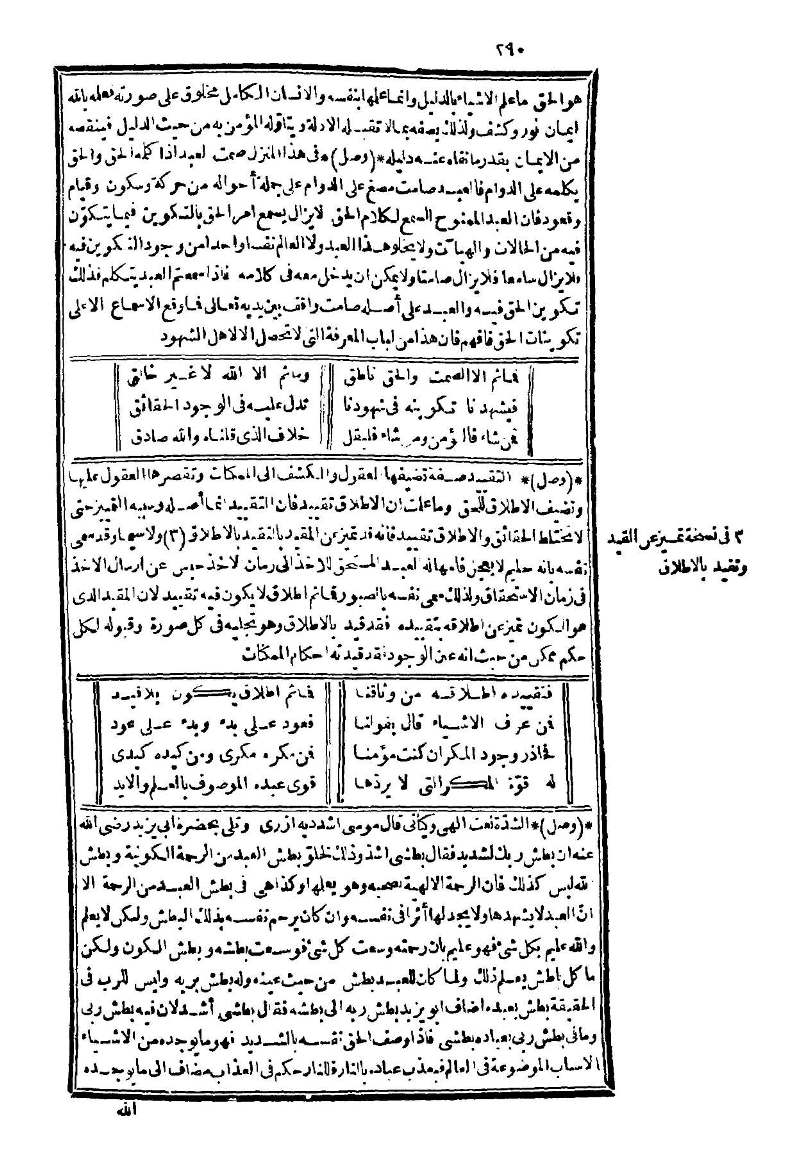 ٢٩٠
هو الحق ما علم الاشياء بالدليل وانما علمها بنفسه والانسان الكامل مخلوق على صورته فعلمه بالله
ايمان نور وكشف ولذلك يصفه بما لا تقبله الادلة ويتأوله المؤمن به من حيث الدليل فينقصه
من الايمان بقدر ما نفاه عنه دليله *(وصل)* فى هذا المنزل صمت لعبد اذا كلمه الحق والحق
يكلمه على الدوام فالعبد صامت مصغ على الدوام على جملة أحواله من حركة وسكون وقيام
وقعود فان العبد الممنوح السمع لكلام الحق لايزال يسمع امر الحق بالتكوين فيما يتكوّن
فيه من الحالات والهيات ولا يخلو هذا العبد ولا العالم نفسا واحدا من وجود التكوين فيه
فلا يزال سامعا فلا يزال صامتا ولا يمكن ان يدخل معه فى كلامه فاذا سمعتم العبد يتكلم فذلك
تكوين الحق فيه والعبد على أصله صامت واقف بين يديه تعالى فما وقع الاسماع الا على
تكوينات الحق فافهم فان هذا من لباب المعرفة التى لا تحصل الا لاهل الشهود
فما ثم الا الصمت والحق ناطق وما ثم الا الله لا غير خالق
فيشهدنا تكوينه فى شهودنا تدل عليه فى الوجود الحقائق
فمن شاء فاليؤمن ومن شاء فليقل خلاف الذى قلناه والله صادق
*(وصل)* التقييد صفة تضيفها لعقول والكشف الى الممكنات وتقصرها العقول عليها
وتضيف الاطلاق للحق وما علمت ان الاطلاق تقييد فان التقييد انما أصله وسببه التمييز حتى
لا تختلط الحقائق والاطلاق تقييد فانه قد تميز عن المقيد بالتقييد بالاطلاق (٣) ولاسيما وقد سمى
نفسه بانه حليم لا يعجل فامهاله لعبد المستحق للاخذ الى زمان لاخذ حبس عن ارسال الاخذ
فى زمان الاستحقاق ولذلك سمى نفسه بالصبور فما ثم اطلاق لا يكون فيه تقييد لان المقيد الذى
هو الكون تميز عن اطلاقه بتقييده فقد قيد بالاطلاق وهو تجليه فى كل صورة وقبوله لكل
حكم ممكن من حيث انه عين الوجود فقد قيدته احكام الممكنات
٣ فى نسخة تميز عن القيد
وتقيد بالاطلاق
فتقييده اطلاقه من وثاقنا فما ثم اطلاق يكون بلا قيد
فمن عرف الاشياء قال بقولنا فعود على بدء وبدء على عود
فحاذر وجود المكر ان كنت مؤمنا فمن مكره مكرى ومن كيده كيدى
له قوّة المكر التى لا يردّها قوى عبده الموصوف بالعلم والايد
*(وصل)* الشدة نعت الهى وكيانى قال موسى اشدد به ازرى وتلى بحضرة ابى يزيد رضى الله
عنه ان بطش ربك لشديد فقال بطشى اشد وذلك لخلو بطش العبد من الرحمة الكونية وبطش
لله ليس كذلك فان الرحمة الالهية تصحبه وهو يعلمها وكذا هى فى بطش العبد من الرحمة الا
انّ العبد لا يشهدها ولا يجد لها أثرا فى نفسه وان كان يرحم نفسه بذلك البطش ولكن لا يعلم
والله عليم بكل شئ فهو عليم بان رحمته وسعت كل شئ فوسعت بطشه وبطش الكون ولكن
ما كل باطش يعلم ذلك ولما كان للعبد بطش من حيث عينه وله بطش بربه وليس للرب فى
الحقيقة بطش بعبده اضاف ابو يزيد بطش ربه الى بطشه فقال بطشى أشد لان فيه بطش ربى
وما فى بطش ربى بعباده بطشى فاذا وصف الحق نفسه بالشديد فهو ما يوجده من الاشياء
الاسباب الموضوعة فى العالم فيعذب عباده بالنار فللنار حكم فى العذاب مضاف الى ما يوجده
الله